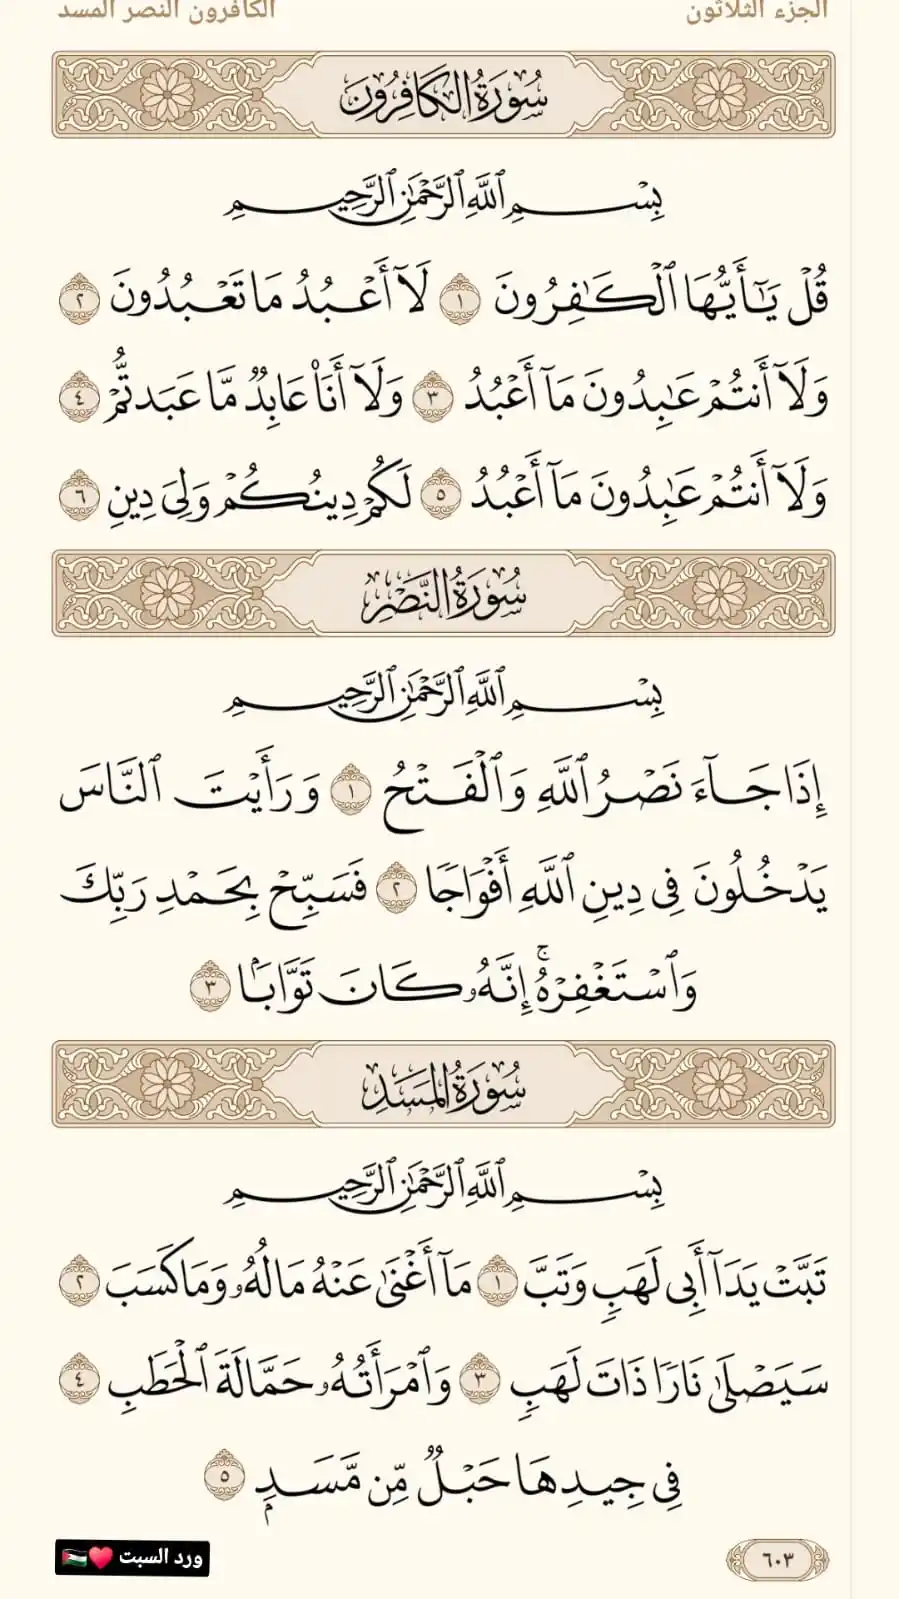 الجزء الثلاثون
الكافرون النصر المسد
سُورَةُ الكَافِرُونَ
بِسۡمِ ٱللَّهِ ٱلرَّحۡمَٰنِ ٱلرَّحِيمِ
قُلۡ يَٰٓأَيُّهَا ٱلۡكَٰفِرُونَ ١ لَآ أَعۡبُدُ مَا تَعۡبُدُونَ ٢
وَلَآ أَنتُمۡ عَٰبِدُونَ مَآ أَعۡبُدُ ٣ وَلَآ أَنَا۠ عَابِدٞ مَّا عَبَدتُّمۡ ٤
وَلَآ أَنتُمۡ عَٰبِدُونَ مَآ أَعۡبُدُ ٥ لَكُمۡ دِينُكُمۡ وَلِيَ دِينِ ٦
سُورَةُ النَّصۡرِ
بِسۡمِ ٱللَّهِ ٱلرَّحۡمَٰنِ ٱلرَّحِيمِ
إِذَا جَآءَ نَصۡرُ ٱللَّهِ وَٱلۡفَتۡحُ ١ وَرَأَيۡتَ ٱلنَّاسَ
يَدۡخُلُونَ فِي دِينِ ٱللَّهِ أَفۡوَاجٗا ٢ فَسَبِّحۡ بِحَمۡدِ رَبِّكَ
وَٱسۡتَغۡفِرۡهُۚ إِنَّهُۥ كَانَ تَوَّابَۢا ٣
سُورَةُ المَسَدِ
بِسۡمِ ٱللَّهِ ٱلرَّحۡمَٰنِ ٱلرَّحِيمِ
تَبَّتۡ يَدَآ أَبِي لَهَبٖ وَتَبَّ ١ مَآ أَغۡنَىٰ عَنۡهُ مَالُهُۥ وَمَا كَسَبَ ٢
سَيَصۡلَىٰ نَارٗا ذَاتَ لَهَبٖ ٣ وَٱمۡرَأَتُهُۥ حَمَّالَةَ ٱلۡحَطَبِ ٤
فِي جِيدِهَا حَبۡلٞ مِّن مَّسَدِۭ ٥
٦٠٣
ورد السبت ♥️🇵🇸